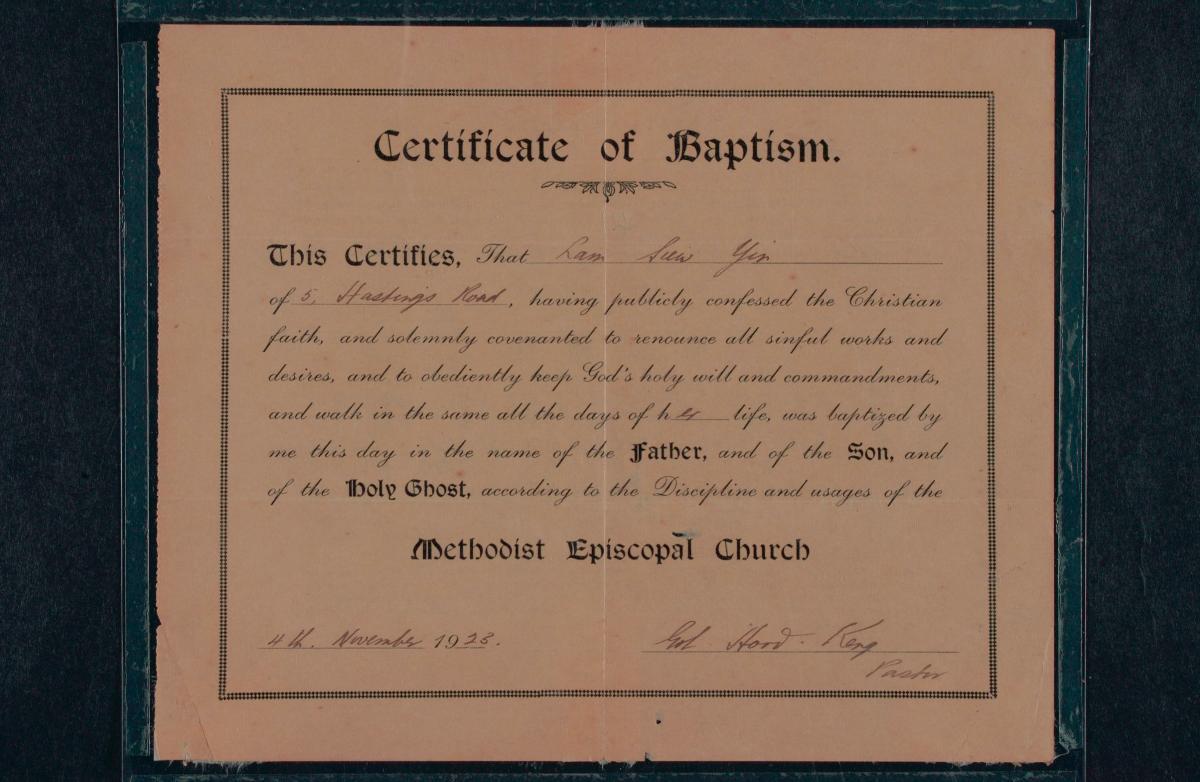 Certificate of Baptism.
This Certifies, That Lam Siew Yin
of 5, Hastings Road, having publicly confessed the Christian
faith, and solemnly covenanted to renounce all sinful works and
desires, and to obediently keep God's holy will and commandments,
and walk in the same all the days of her life, was baptized by
me this day in the name of the Father, and of the Son, and
of the Holy Ghost, according to the Discipline and usages of the
Methodist Episcopal Church
4th. November 1923.
Goh Hood Keng
Pastor